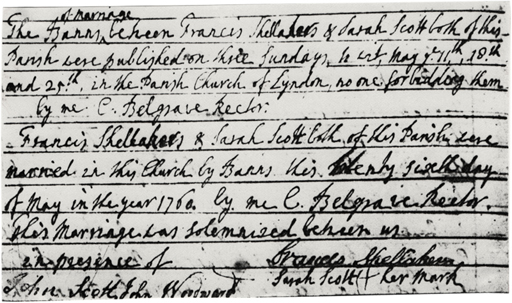 of marriage
The Banns between Francis Shellakers & Sarah Scott both of this
Parish were published on three Sundays, to wit, May ye 11th, 18th
and 25th, in the Parish Church of Lyndon, no one forbidding them
by me C. Belgrave Rector.
Francis Shellakers & Sarah Scott both of this Parish were
married in this Church by Banns this twenty sixth day
of May in the year 1760. by me C. Belgrave Rector.
This Marriage was solemnized between us
in presence of Francis Shellakers
John Scott John Woodward Sarah Scott + her Mark